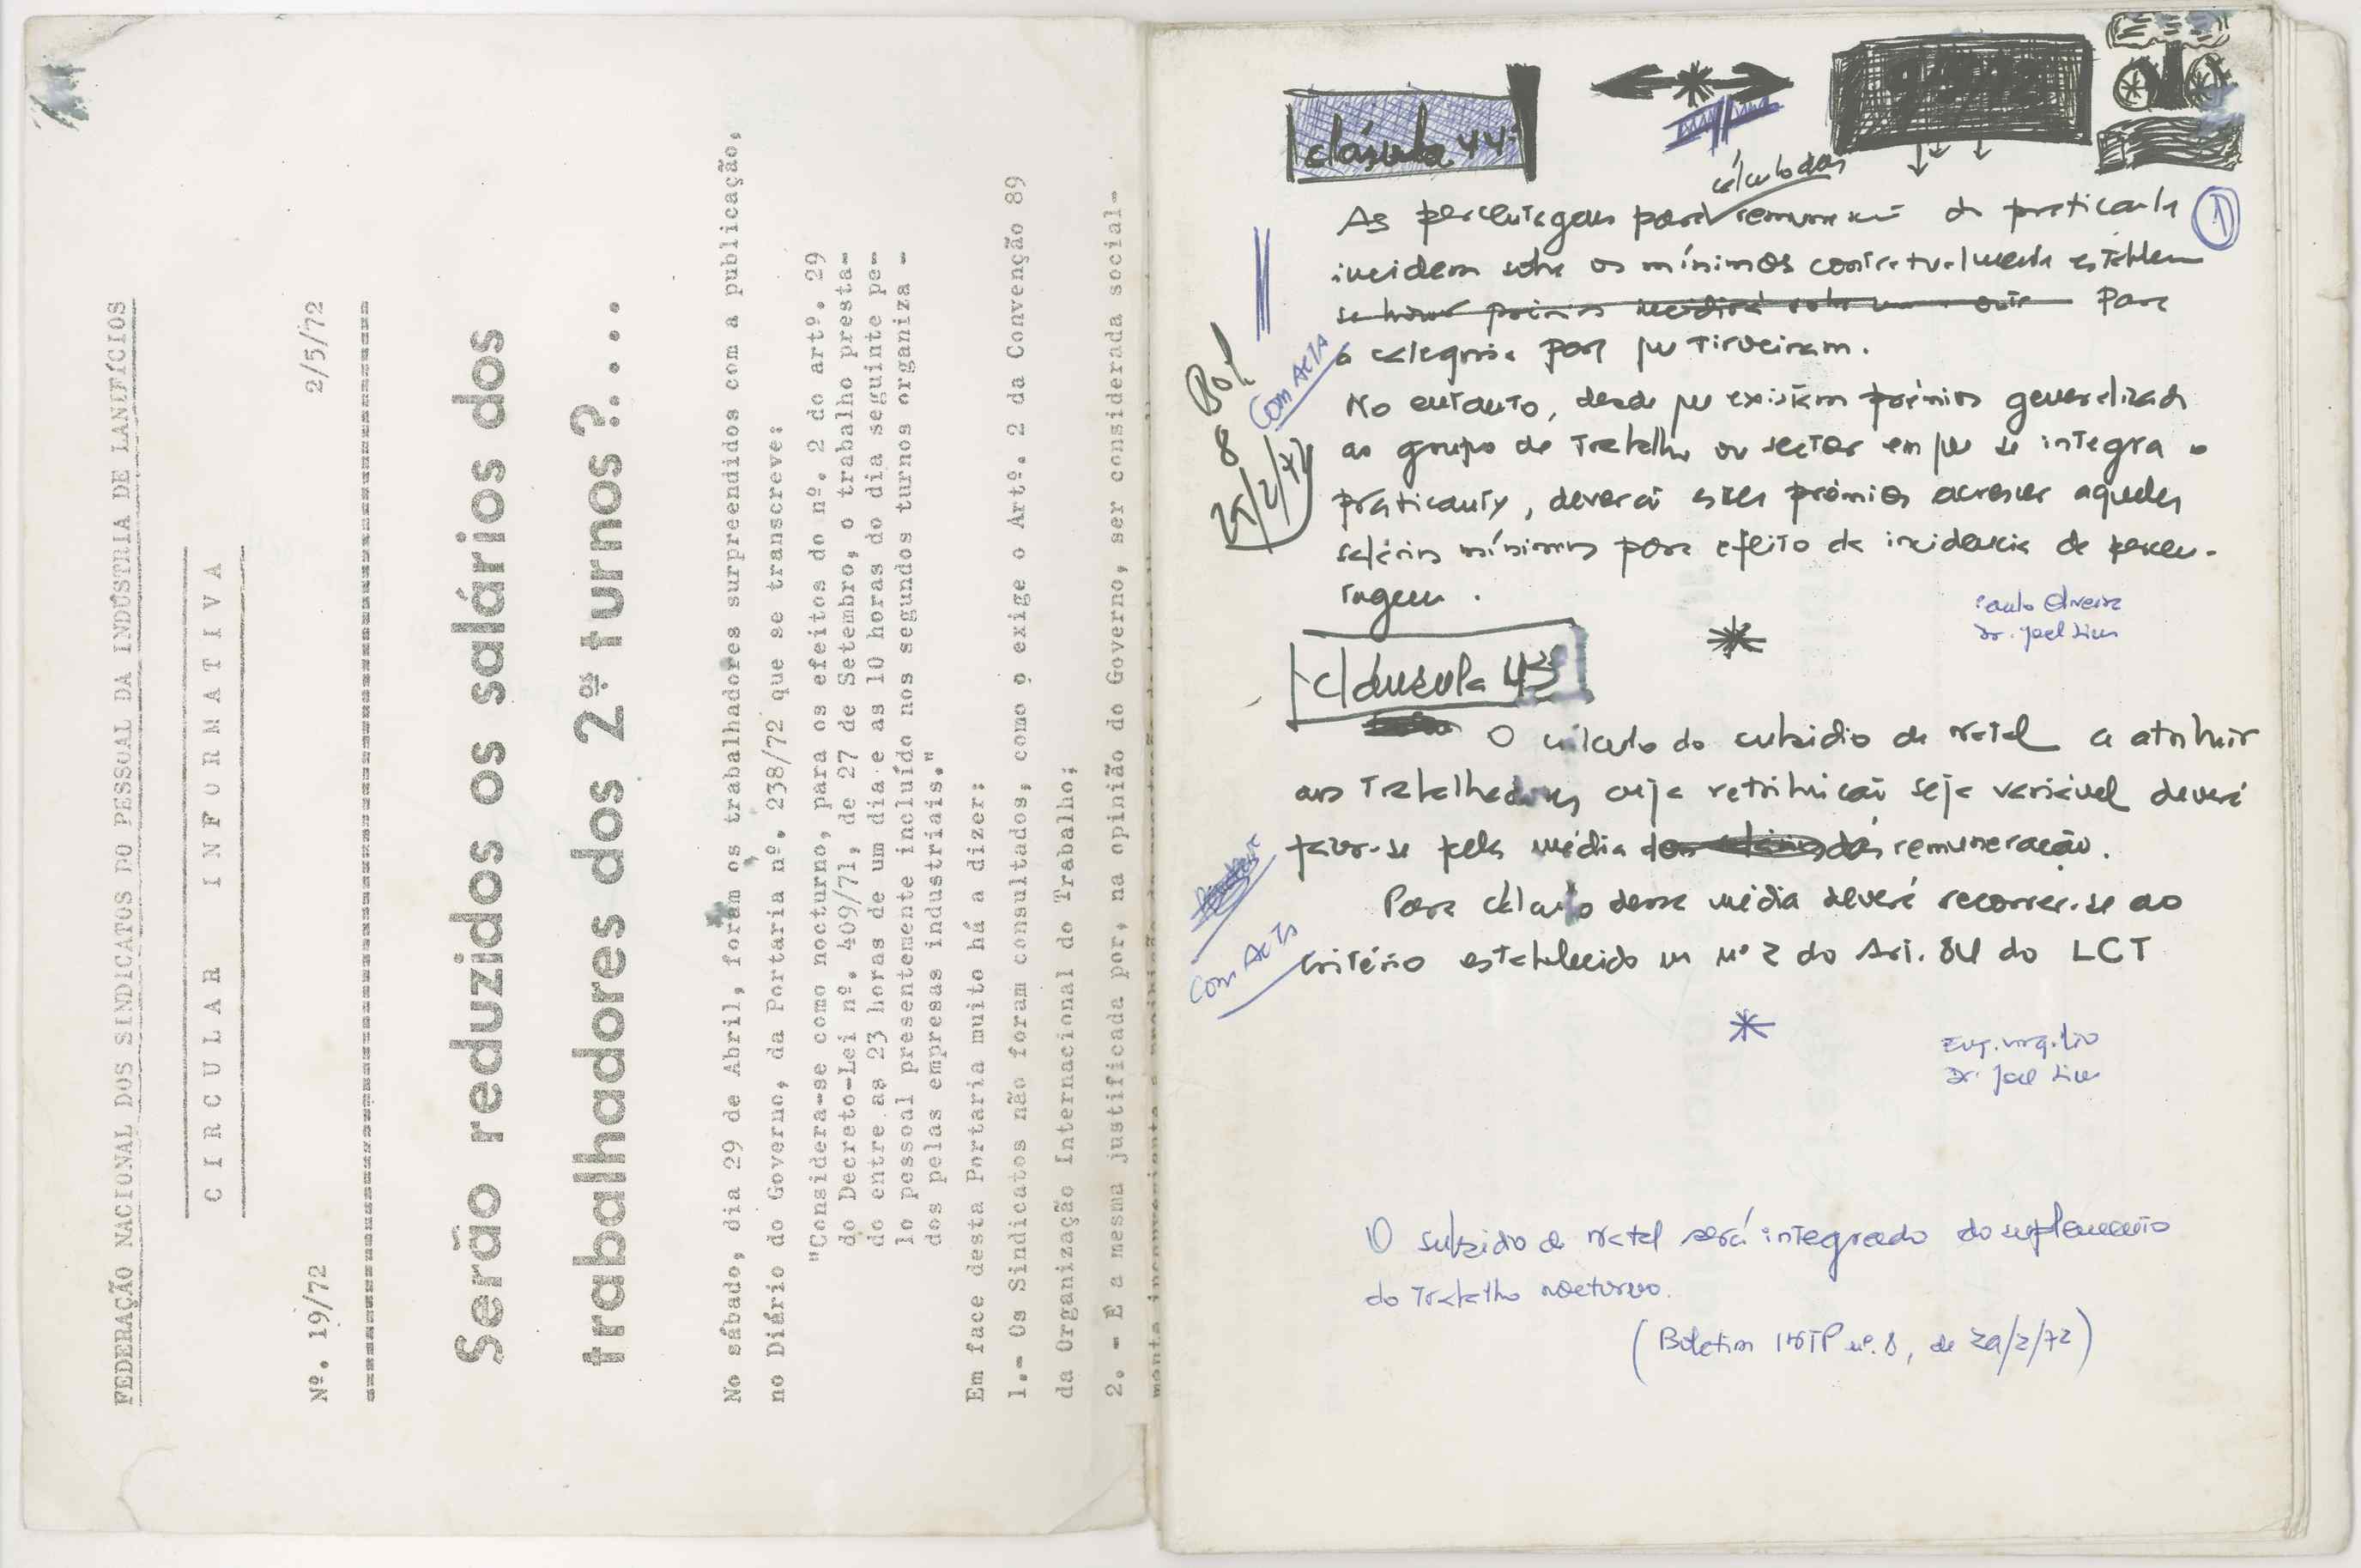 FEDERAÇÃO NACIONAL DOS SINDICATOS DO PESSOAL DA INDÚSTRIA DE LANIFÍCIOS
CIRCULAR INFORMATIVA
Nº. 19/72 2/5/72
Serão reduzidos os salários dos
trabalhadores dos 2ºs turnos ?....
No sábado, dia 29 de Abril, foram os trabalhadores surpreendidos com a publicação,
no Diário do Governo, da Portaria nº. 238/72 que se transcreve:
"Considera-se como nocturno, para os efeitos do nº. 2 do artº. 29
do Decreto-Lei nº. 409/71, de 27 de Setembro, o trabalho presta-
do entre as 23 horas de um dia e as 10 horas do dia seguinte pe-
lo pessoal presentemente incluído nos segundos turnos organiza -
dos pelas empresas industriais."
Em face desta Portaria muito há a dizer:
1.- Os Sindicatos não foram consultados, como o exige o Artº. 2 da Convenção 89
da Organização Internacional do Trabalho;
2. - E a mesma justificada por, na opinião do Governo, ser considerada social-
clásula 44ª
cálculo das
As percentagens para remuneração do praticante
1
incidem sobre os mínimos contratualmente estabelem
para
a categoria por que tirveiram.
No entanto, desde que existam prémios generalizads
ao grupo de trabalho ou sector em que se integra o
praticante, deverá estes prémios acrescer aqueles
salários mínimos para efeito da incidencia de percen-
tagem.
Bol
8
COM ACTA
Paulo Oliveira
Dr. Joel Lima
Cláusula 43ª
O cálculo do subsídio de natal a atribuir
aos trabalhadores cuja retribuição seja variável deverá
fazer-se pela média das remuneração.
Para cálculo dessa média deverá recorrer-se ao
critério estabelecido no nº 2 do Art. 84 do LCT
COM ACTA
Eng. Virgílio
Dr. Joel Lima
O subsidio de natal será integrado do suplemento
do trabalho nocturno.
(Boletim INTP nº. 8, de 29/2/72)